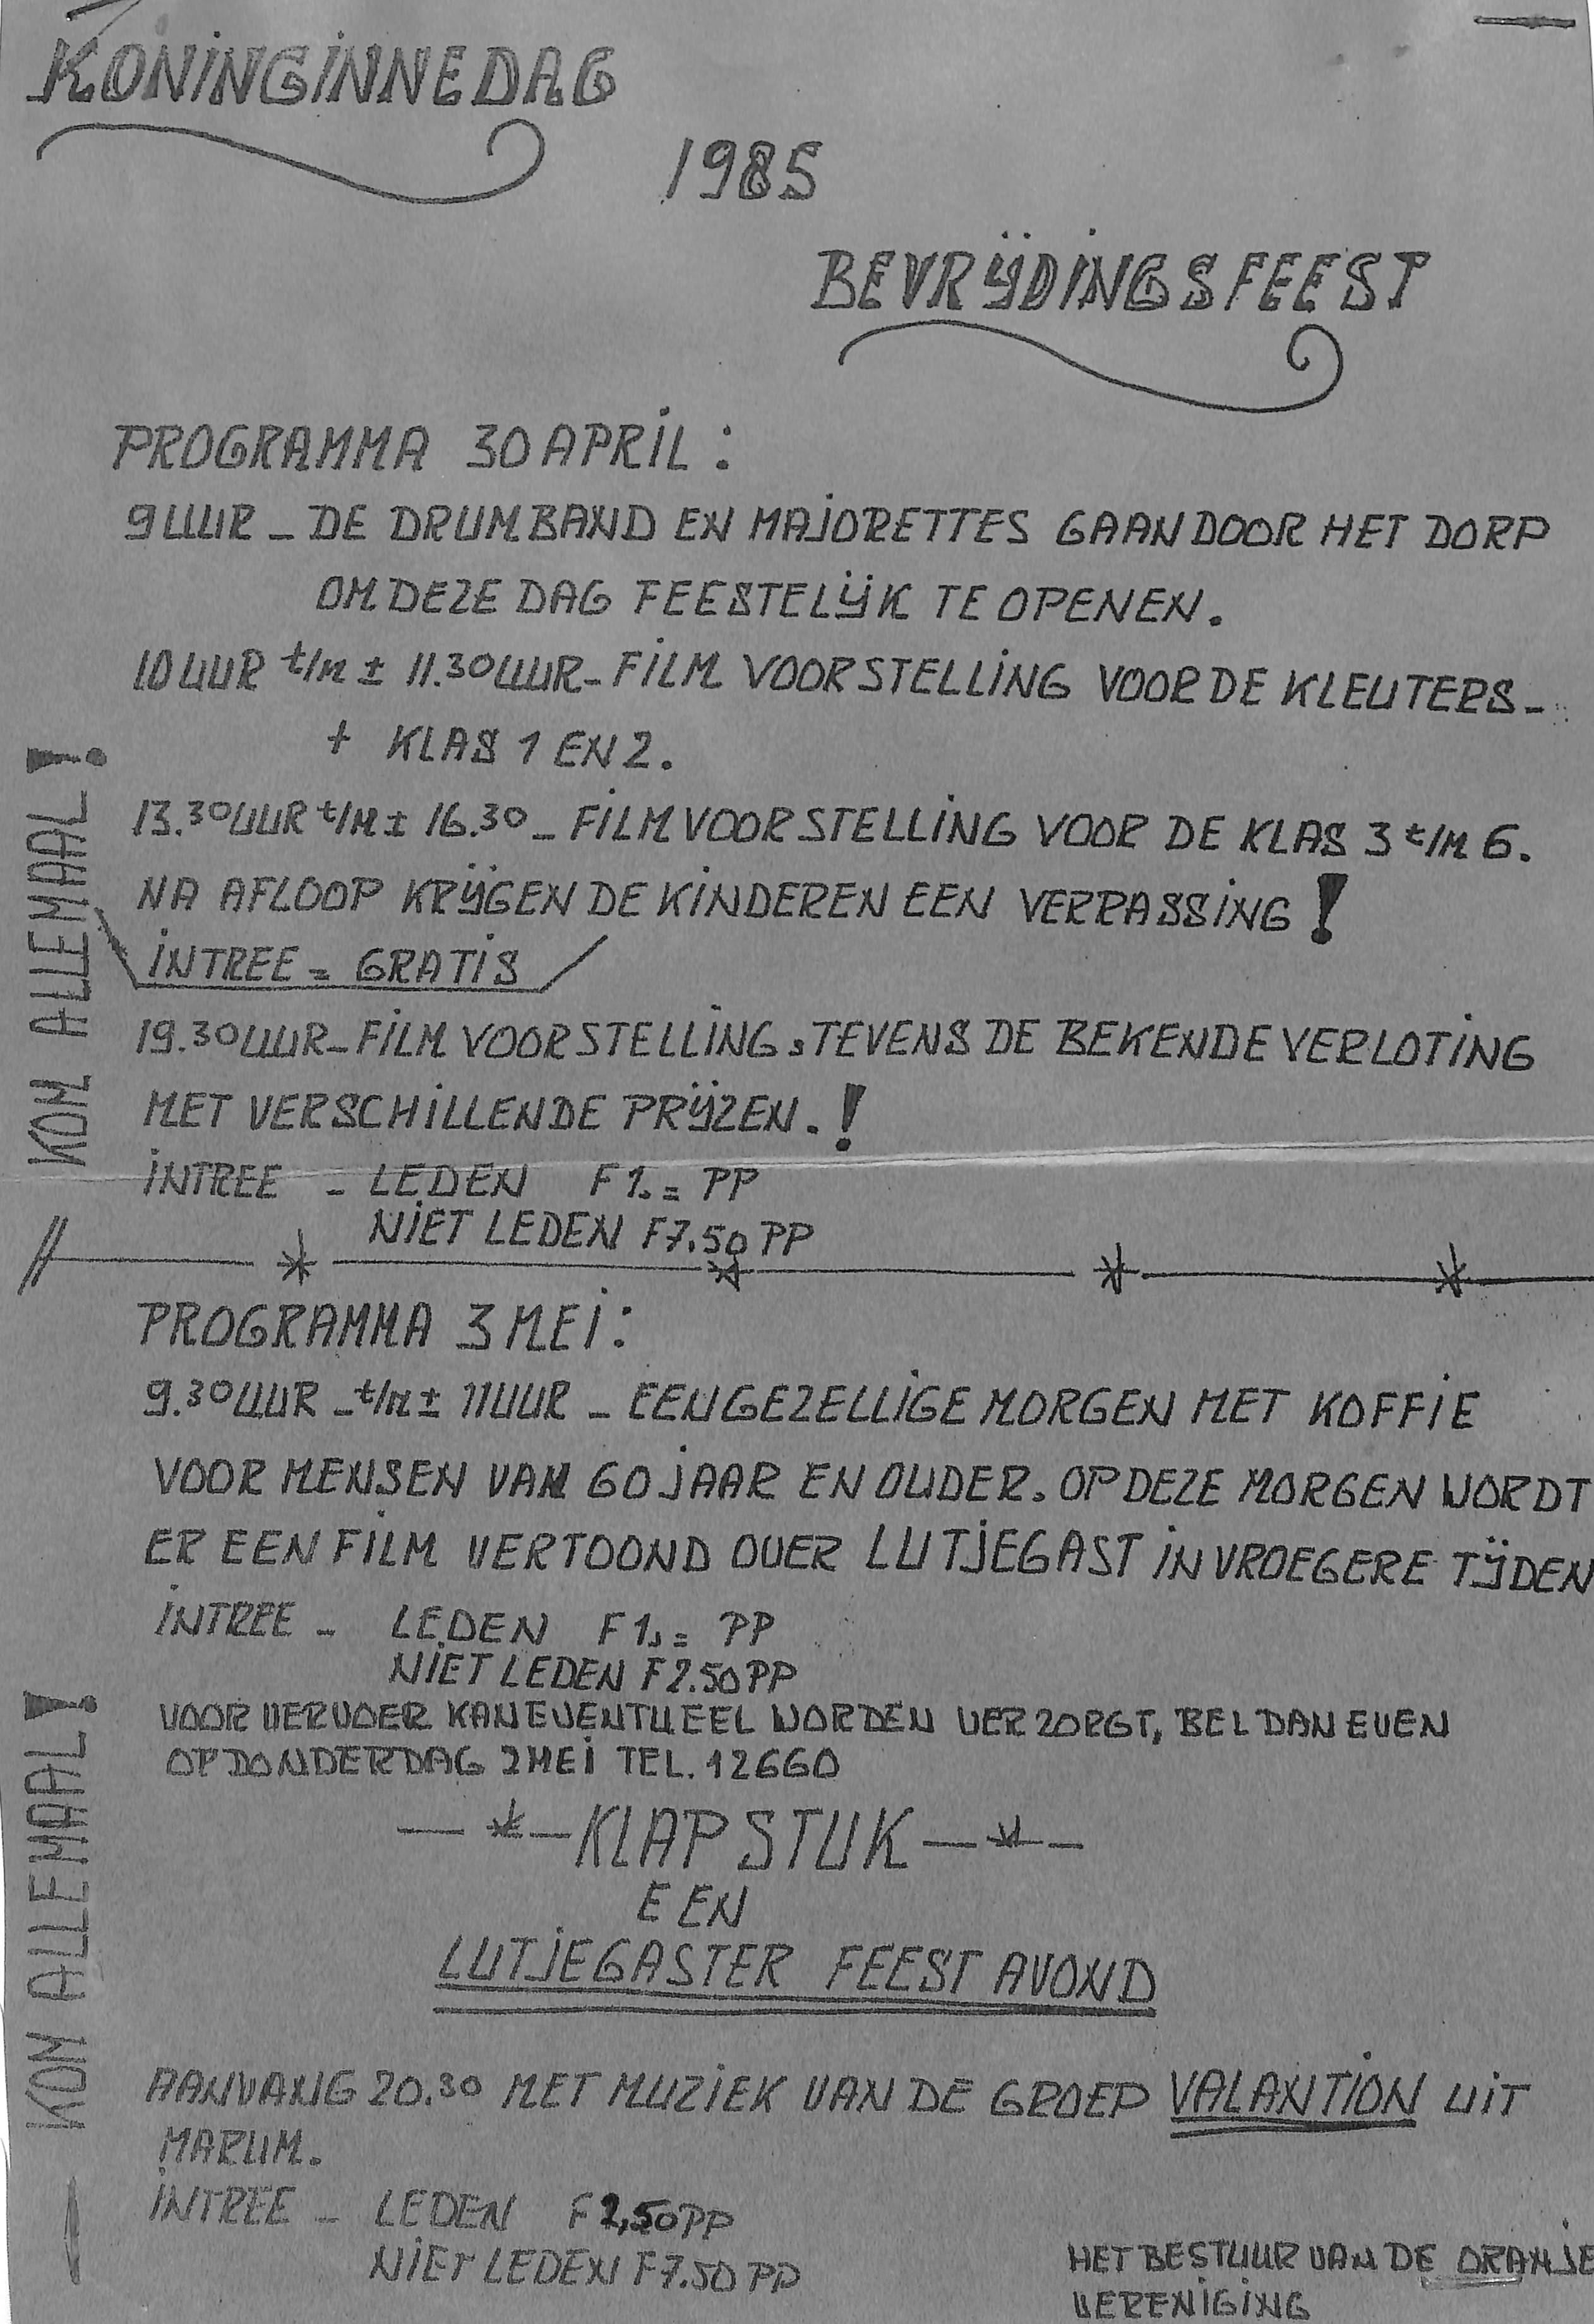 KONINGINNEDAG
1985
BEVRIJDINGSFEEST
PROGRAMMA 30 APRIL :
9 UUR - DE DRUMBAND EN MAJORETTES GAAN DOOR HET DORP
OM DEZE DAG FEESTELIJK TE OPENEN.
10 UUR t/m ± 11.30 UUR - FILM VOORSTELLING VOOR DE KLEUTERS -
+ KLAS 1 EN 2.
13.30 UUR t/m ± 16.30 - FILM VOORSTELLING VOOR DE KLAS 3 t/m 6.
NA AFLOOP KRIJGEN DE KINDEREN EEN VERRASSING !
INTREE = GRATIS
19.30 UUR - FILM VOORSTELLING, TEVENS DE BEKENDE VERLOTING
MET VERSCHILLENDE PRIJZEN. !
INTREE - LEDEN F 1.= PP
NIET LEDEN F 7.50 PP
PROGRAMMA 3 MEI :
9.30 UUR - t/m ± 11 UUR - EEN GEZELLIGE MORGEN MET KOFFIE
VOOR MENSEN VAN 60 JAAR EN OUDER. OP DEZE MORGEN WORDT
ER EEN FILM VERTOOND OVER LUTJEGAST IN VROEGERE TIJDEN
INTREE - LEDEN F 1,= PP
NIET LEDEN F 2.50 PP
VOOR VERVOER KAN EVENTUEEL WORDEN VERZORGT, BEL DAN EVEN
OP DONDERDAG 2 MEI TEL. 12660
— * — KLAPSTUK — * —
EEN
LUTJEGASTER FEEST AVOND
AANVANG 20.30 MET MUZIEK VAN DE GROEP VALANTION UIT
MARUM.
INTREE - LEDEN F 2,50 PP
NIET LEDEN F 7.50 PP
HET BESTUUR VAN DE ORANJE
VERENIGING
KOM ALLEMAAL !
KOM ALLEMAAL !